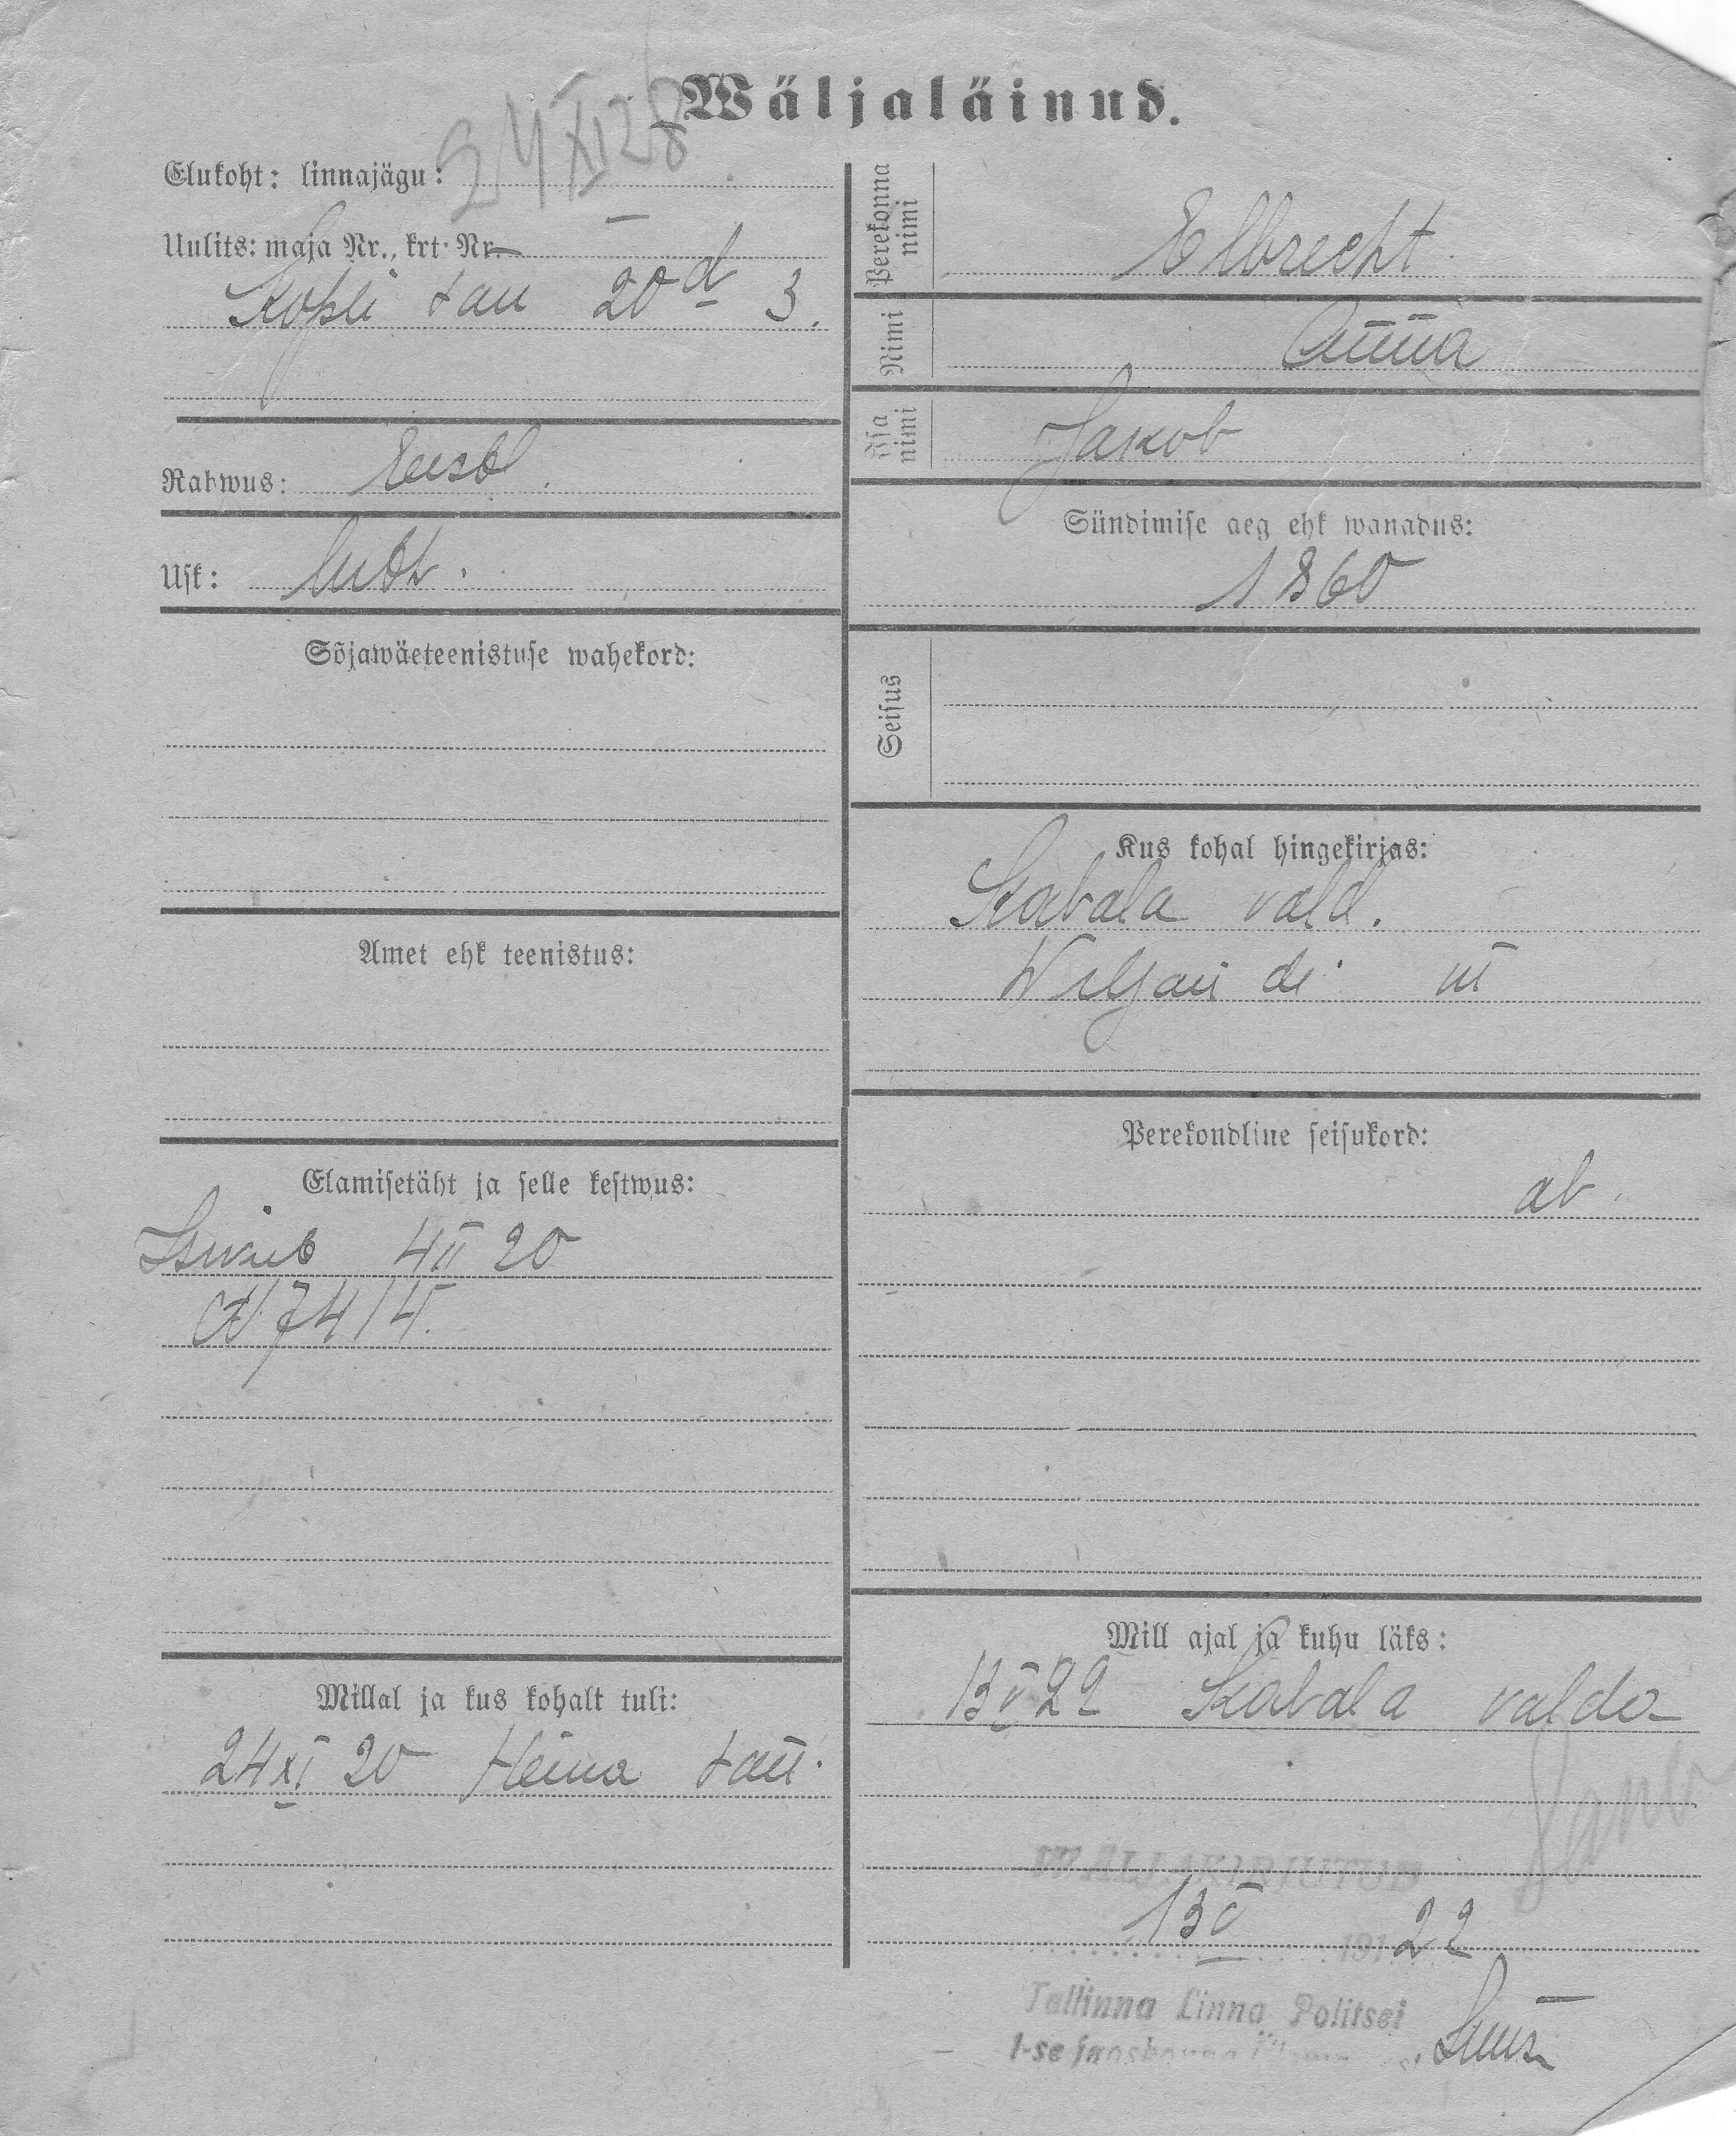 Wäljaläinud.
24 XI 28
Elukoht: linnajägu:
Uulits: maja Nr., krt. Nr.
Kopli tän 20d 3.
Rahwus: Eestl.
Usk: luth.
Sõjawäeteenistuse wahekord:
Amet ehk teenistus:
Elamisetäht ja selle kestwus:
4 II 20
7414.
Millal ja kus kohalt tuli:
24 XI 20 Heina tän.
Perekonna nimi
Elbrecht
Nimi
Anna
Isa nimi
Jakob
Sündimise aeg ehk wanadus:
1860
Seisus
Kus kohal hingekirjas:
Kabala vald.
Wiljandi m
Perekondline seisukord:
ab.
Mill ajal ja kuhu läks:
13 V 22 Kabala valda
WÄLJAKIRJUTUD
13 V 191 22
Tallinna Linna Politsei
1-se jaoskonna